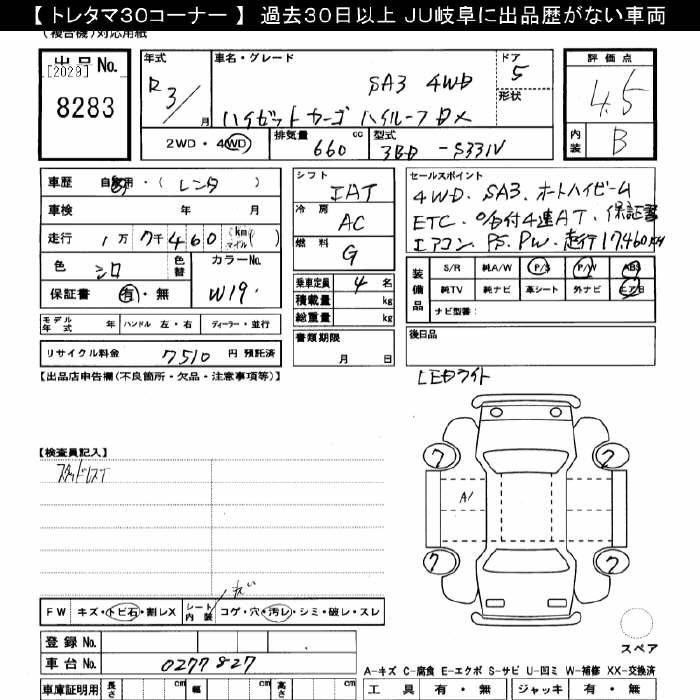 【トレタマ30コーナー】 過去30日以上 JU岐阜に出品歴がない車両
(複合機)対応用紙
出品No.
[2029]
8283
年式
R3/
月
車名・グレード
SA3 4WD
ハイゼットカーゴ ハイルーフDX
ドア
5
形状
評価点
4.5
内装
B
2WD・4WD
排気量
660
cc
型式
3BD -S331V
車歴 自家用・( レンタ )
車検 年 月
走行 1万 7千 4 6 0 km マイル ( )
色 シロ
色替
カラーNo.
W19
保証書 有・無
シフト
IAT
冷房
AC
燃料
G
乗車定員 4 名
積載量 kg
総重量 kg
書類期限
月 日
セールスポイント
4WD. SA3. オートハイビーム
ETC. 4速AT. 保証書
エアコン. PS. PW. 走行17,460km
装備品
S/R 純A/W P/S P/W ABS
純TV 純ナビ 革シート 外ナビ エアB
ナビ型番:
後日品
LEDライト
モデル年式 年 ハンドル 左・右 ディーラー・並行
リサイクル料金 7510 円 預託済
【出品店申告欄(不良箇所・欠品・注意事項等)】
【検査員記入】
スタッドレスT
7
7
A1
7
7
FW キズ・トビ石・割レX
シート内装 コゲ・穴・汚レ・シミ・破レ・スレ
登録No.
車台No. 0277827
スペア
A-キズ C-腐食 E-エクボ S-サビ U-凹ミ W-補修 XX-交換済
車庫証明用 長さ cm 幅 cm 高さ cm
工具 有・無 ジャッキ 有・無